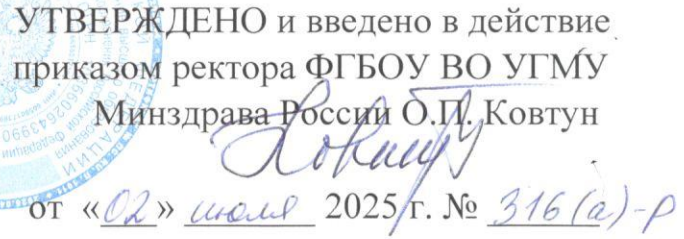 УТВЕРЖДЕНО и введено в действие
приказом ректора ФГБОУ ВО УГМУ
Минздрава России О.П. Ковтун
от «02» июля 2025 г. № 316(а)-р